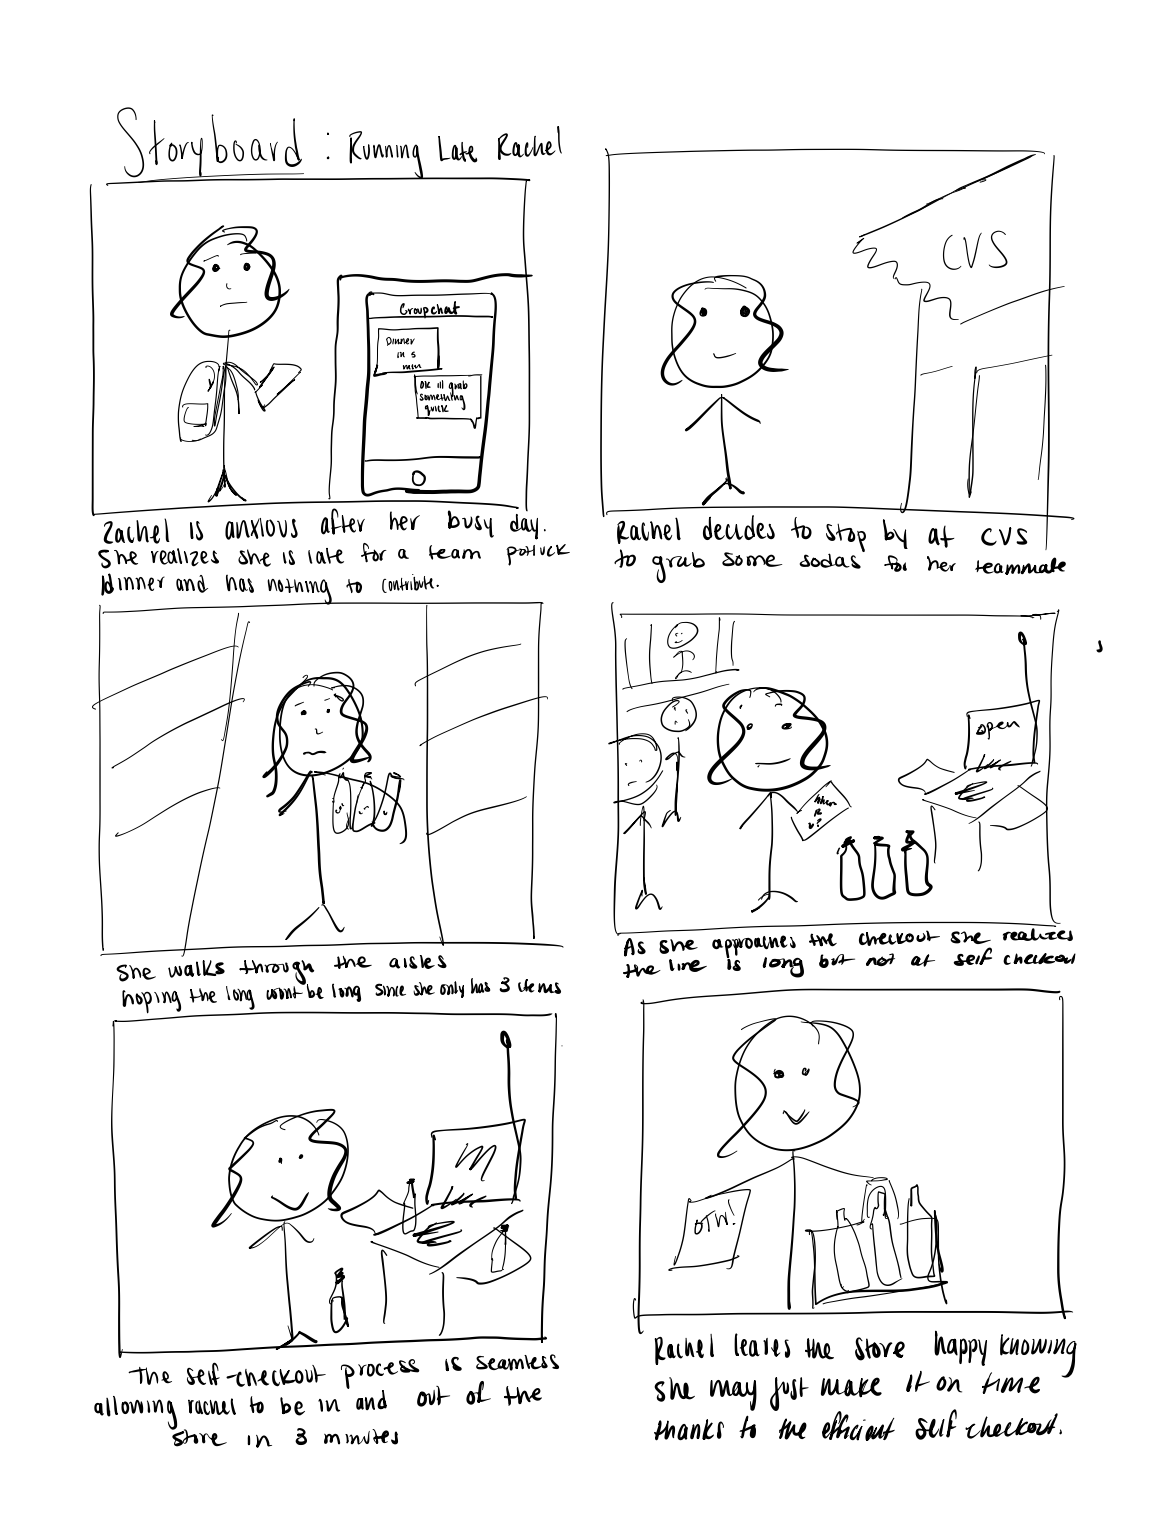 Storyboard : Running Late Rachel
Groupchat
Dinner
in 5
min
OK ill grab
something
quick
Rachel is anxious after her busy day.
She realizes she is late for a team potluck
dinner and has nothing to contribute.
CVS
Rachel decides to stop by at CVS
to grab some sodas for her teammate
She walks through the aisles
hoping the long wont be long since she only has 3 items
open
When
R
u?
As she approaches the checkout she realizes
the line is long but not at self checkout
The self-checkout process is seamless
allowing rachel to be in and out of the
store in 3 minutes
OTW!
Rachel leaves the store happy knowing
she may just make it on time
thanks to the efficient self checkout.